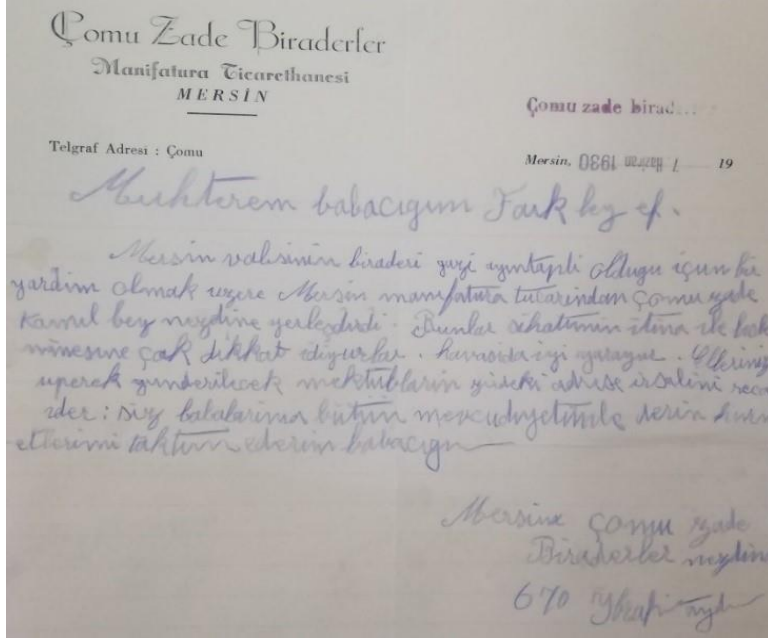 Çomu Zade Biraderler
Manifatura Ticarethanesi
MERSİN
Çomu zade birad...
Telgraf Adresi : Çomu
Mersin, 1 Haziran 1930 19
Muhterem babacıgım Faik bey ef.
Mersin valisinin biraderi gazi ayıntaplı oldugu içun bir
yardim olmak uzere Mersin manifatura tucarindan çomu zade
Kamil bey nezdine yerleşdirdi. Bunlar sihatımin itina ile bak
minesine çok dikkat idiyurlar. havasida iyi yarayur. Elleriniz
uperek gunderilecek mektubların adrese irsalini reca
ider: siz babalarıma bütün mevcudiyetimle derin hurm
etlerimi takdim ederim babacıgım
Mersinde çomu zade
Biraderler nezdin
670